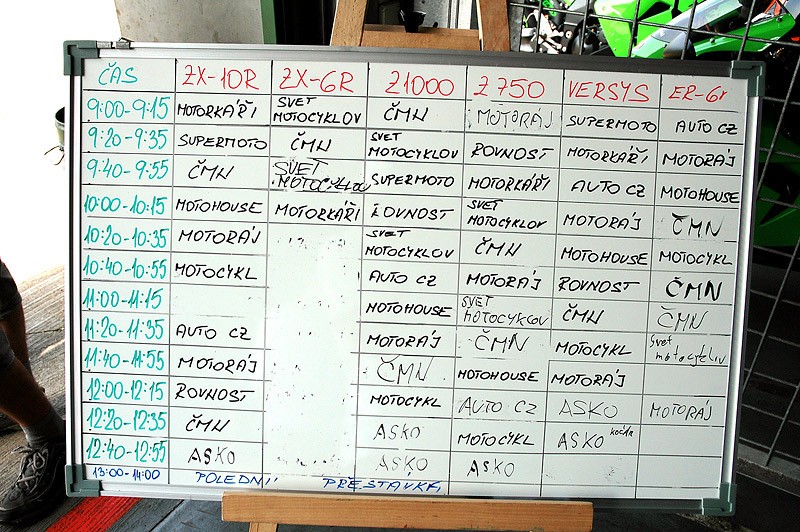 ČAS ZX-10R ZX-6R Z1000 Z750 VERSYS ER-6f
9:00-9:15 MOTORKÁŘI SVET MOTOCYKLOV ČMN MOTORÁJ SUPERMOTO AUTO CZ
9:20-9:35 SUPERMOTO ČMN SVET MOTOCYKLOV ROVNOST MOTORKÁŘI MOTORÁJ
9:40-9:55 ČMN SVET MOTOCYKLOV SUPERMOTO MOTORKÁŘI AUTO CZ MOTOHOUSE
10:00-10:15 MOTOHOUSE MOTORKÁŘI ROVNOST SVET MOTOCYKLOV MOTORÁJ ČMN
10:20-10:35 MOTORÁJ SVET MOTOCYKLOV ČMN MOTOHOUSE MOTOCYKL
10:40-10:55 MOTOCYKL AUTO CZ MOTORÁJ ROVNOST ČMN
11:00-11:15 MOTOHOUSE SVET MOTOCYKLOV ČMN ČMN
11:20-11:35 AUTO CZ MOTORÁJ ČMN MOTOCYKL Svet motocyklov
11:40-11:55 MOTORÁJ ČMN MOTOHOUSE MOTORÁJ
12:00-12:15 ROVNOST MOTOCYKL AUTO CZ ASKO MOTORÁJ
12:20-12:35 ČMN ASKO MOTOCYKL ASKO
12:40-12:55 ASKO ASKO ASKO
13:00-14:00 POLEDNÍ PŘESTÁVKA